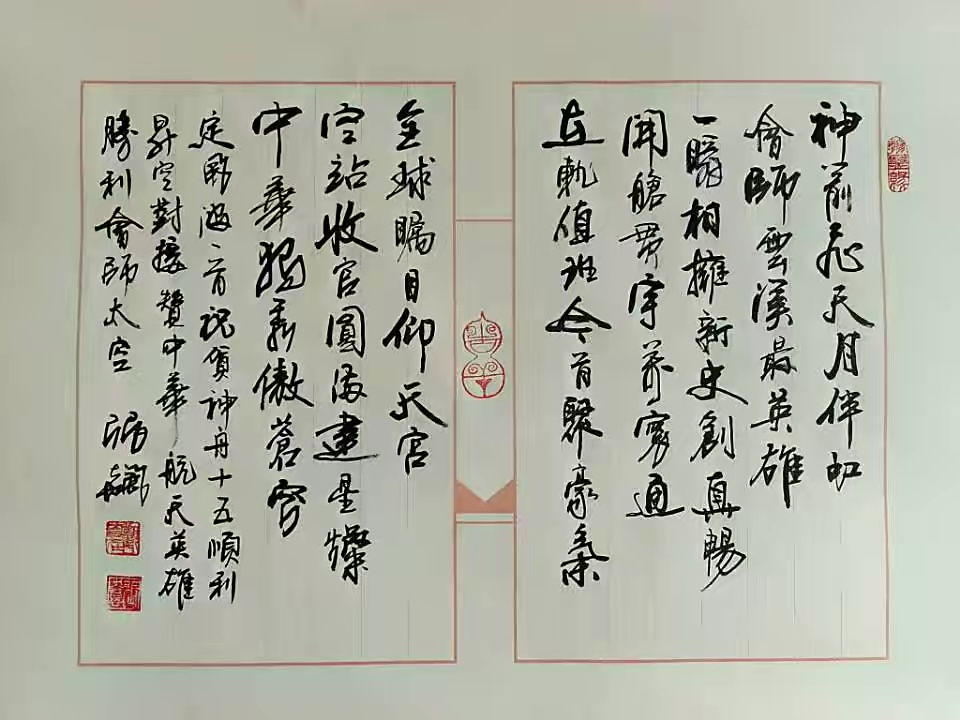 神箭飛天月伴虹
會師雲漢最英雄
一瞬相擁新史創真暢
開艙貫宇萬寰通
在軌值班今首聚豪氣
全球瞩目仰天宮
空站收官圓滿建星燦
中華獨秀傲蒼穹
定風波一首祝賀神舟十五順利
昇空對接贊中華航天英雄
勝利會師太空